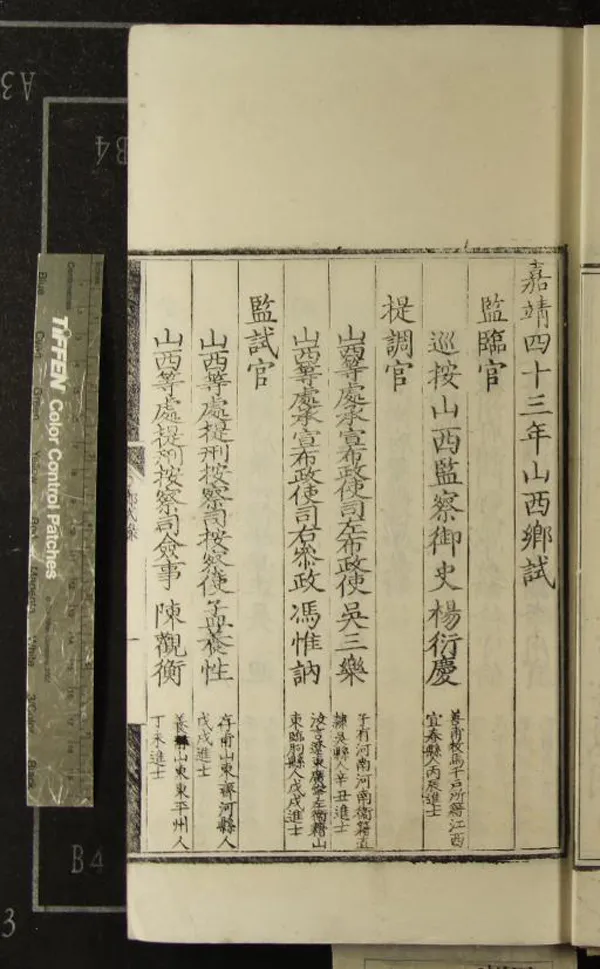 嘉靖四十三年山西鄉試
監臨官
巡按山西監察御史楊衍慶
善甫校馬千戶所籍江西
宜春縣人丙辰進士
提調官
山西等處承宣布政使司左布政使吳三樂
子有河南河南衛籍直
隸吳縣人辛丑進士
山西等處承宣布政使司右參政馮惟訥
汝言遼東廣寧左衛籍山
東臨朐縣人戊戌進士
監試官
山西等處提刑按察司按察使孟養性
存甫山東齊河縣人
戊戌進士
山西等處提刑按察司僉事陳觀衡
山東東平州人
丁未進士
TIFFEN Color Control Patches
Blue
Green
Yellow
Red
Magenta
White
3/Color
Black
A3
B4
B4
3